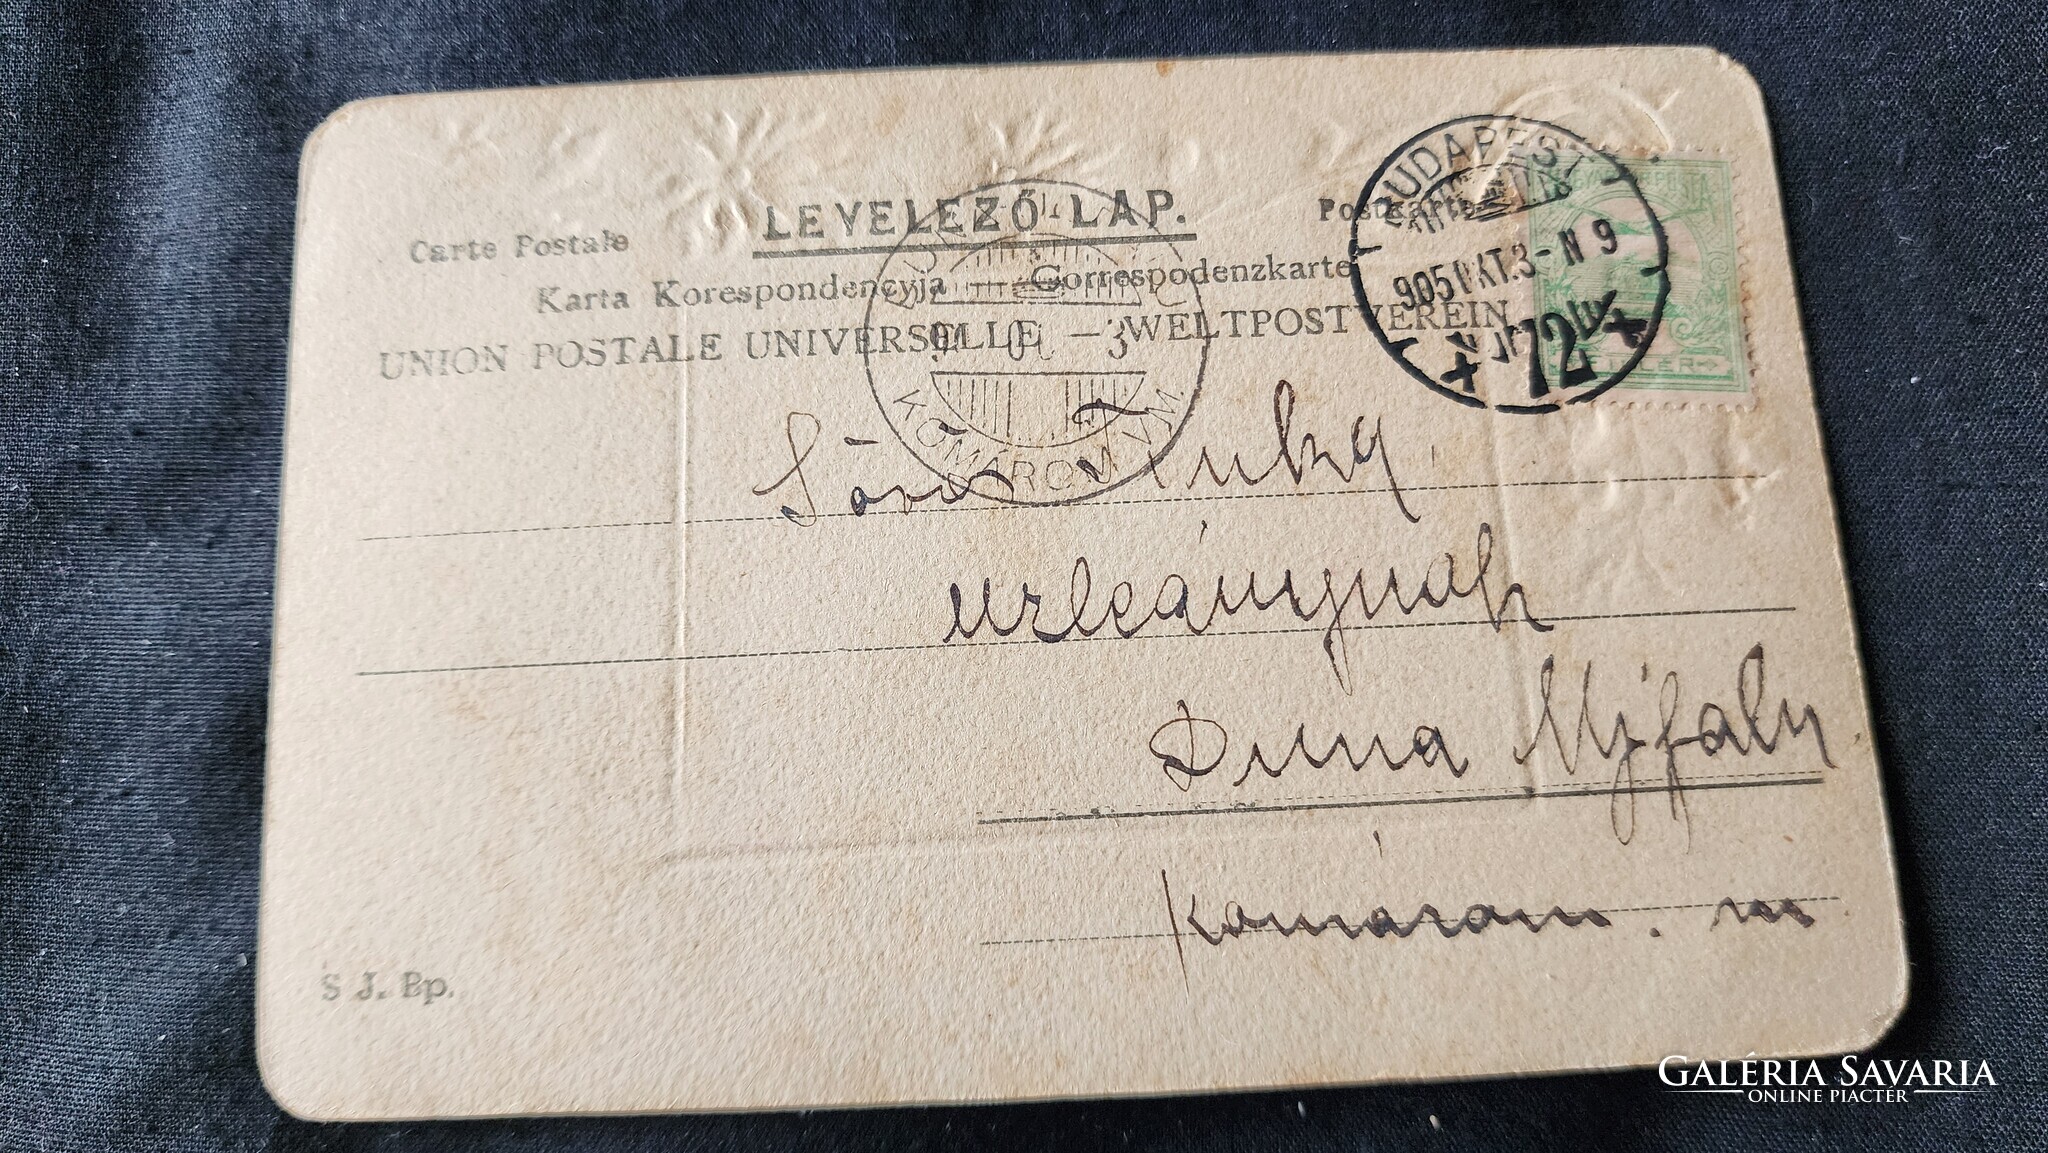 LEVELEZŐ LAP.
Carte Postale
Postkarte
Karta Korespondencyja — Correspodenzkarte
UNION POSTALE UNIVERSELLE — WELTPOSTVEREIN
BUDAPEST
905 OKT. 3 - N 9
72
KOMÁROM VM
Sörös Tuky
urleánynak
Duna Ujfalu
Komárom. m
S J. Bp.
GALÉRIA SAVARIA
ONLINE PIACTÉR